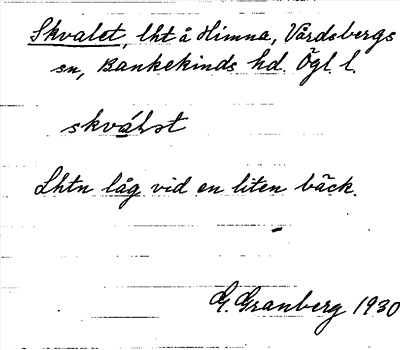 Skvalet, lht å Himna, Vårdsbergs
sn, Bankekinds hd. Ögl l.
skválst
Lhtn låg vid en liten bäck.
G. Granberg 1930